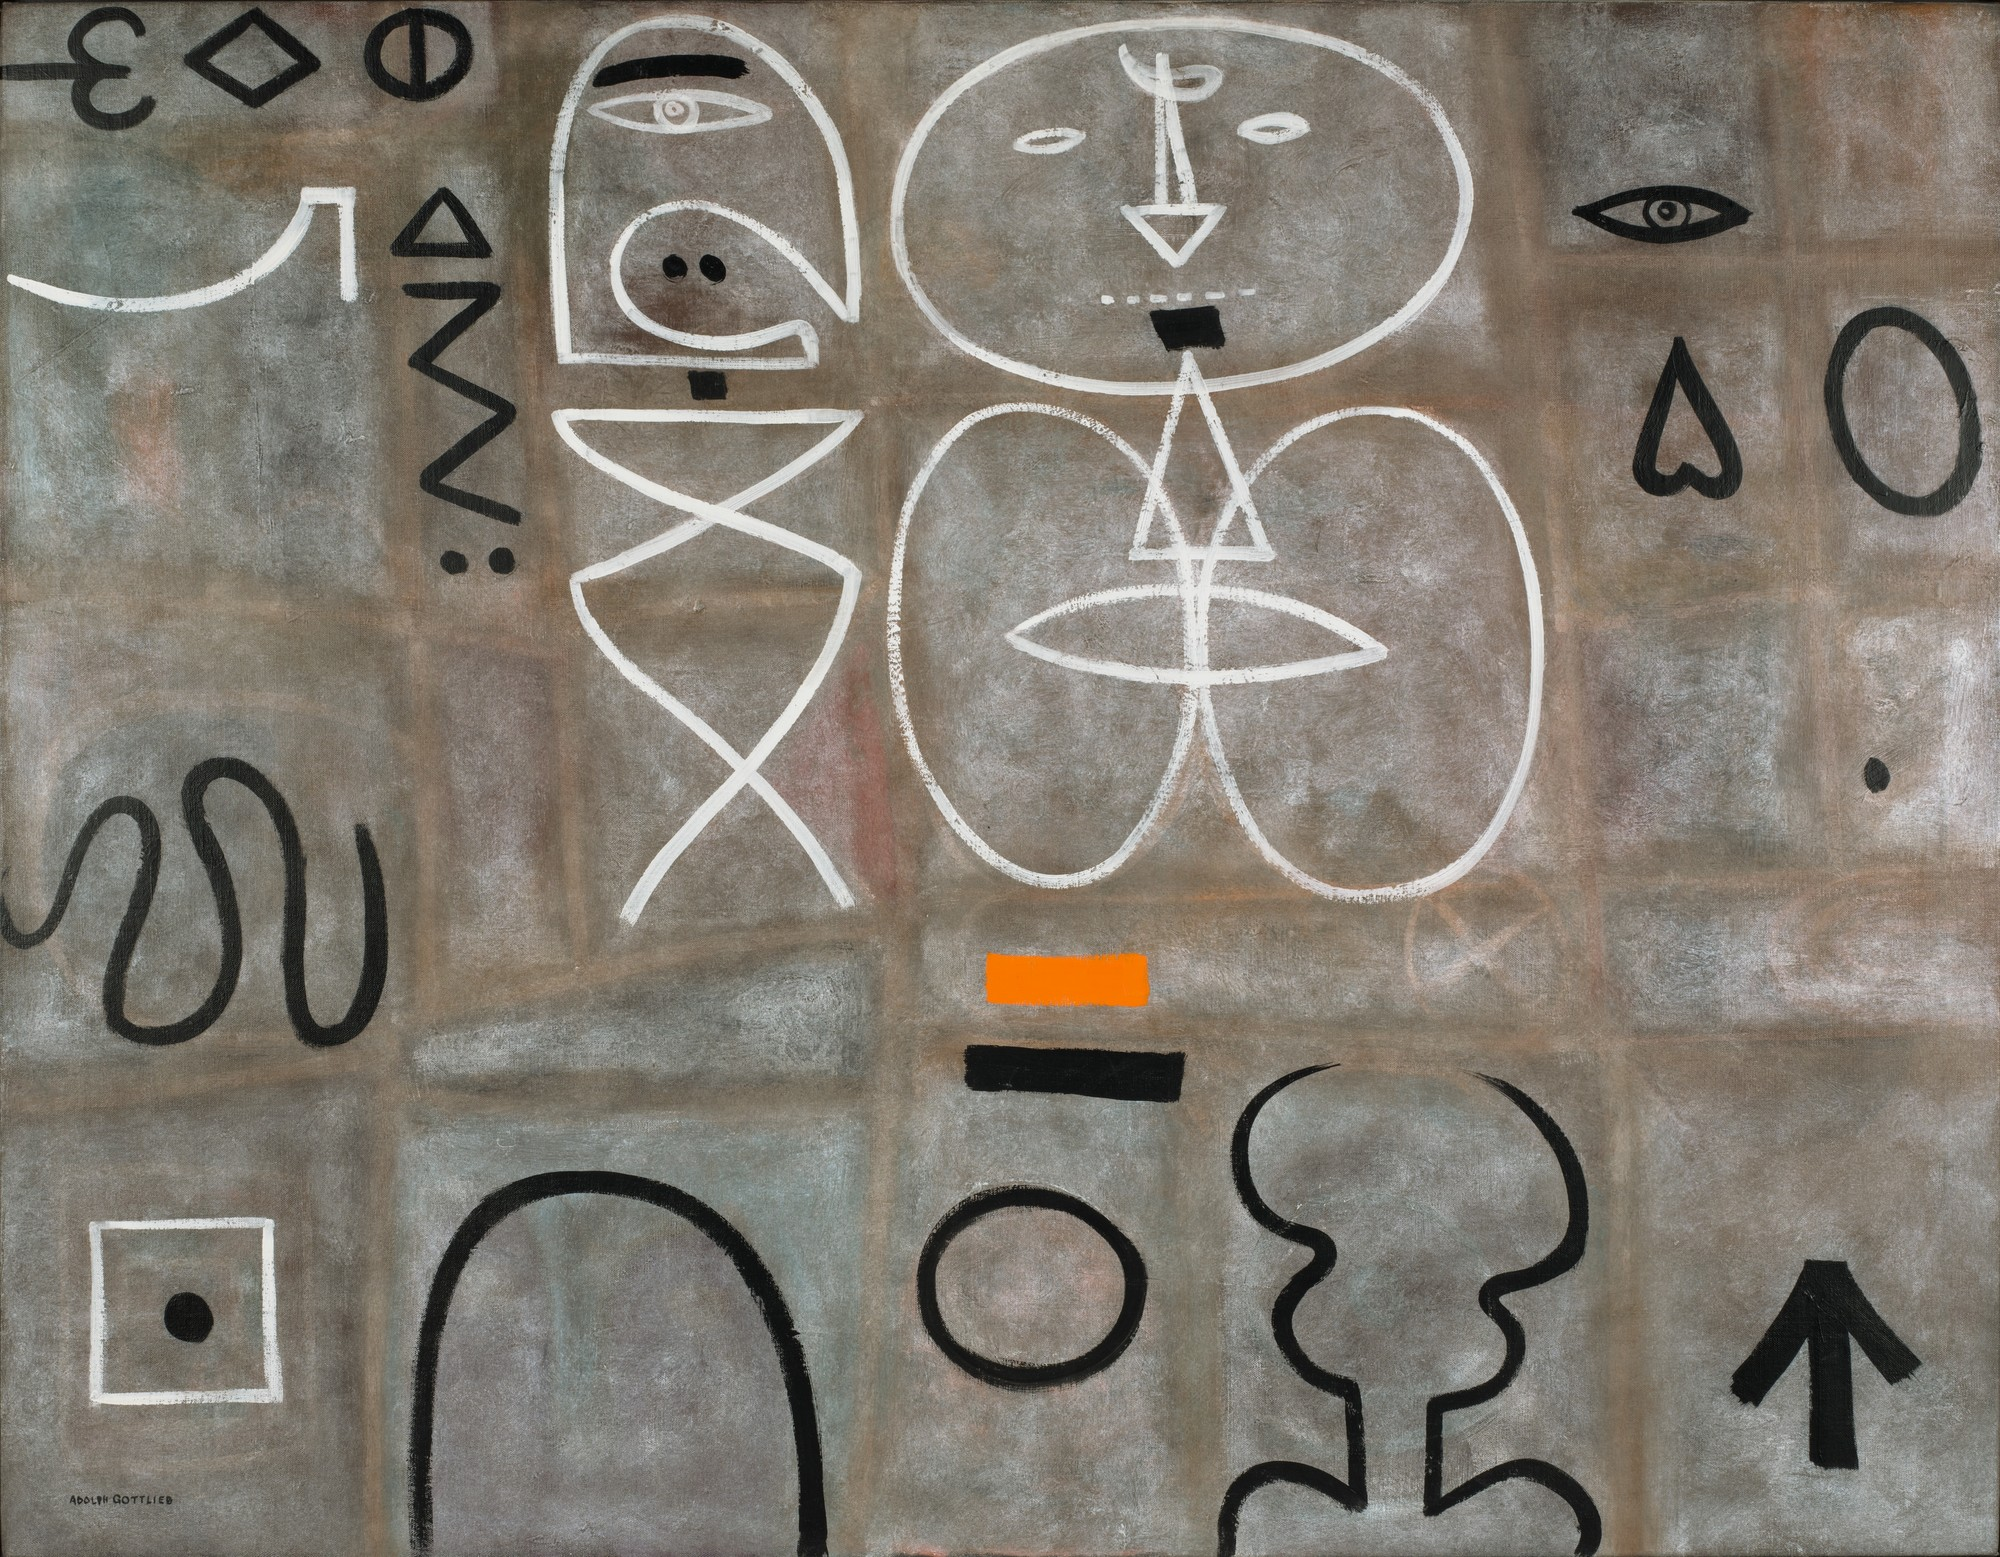 ADOLPH GOTTLIEB